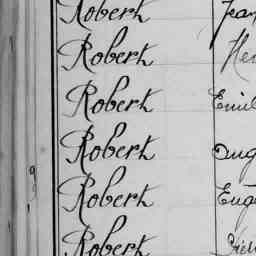 Robert Jean
Robert
Robert Emil
Robert Aug
Robert Eugè
Robert